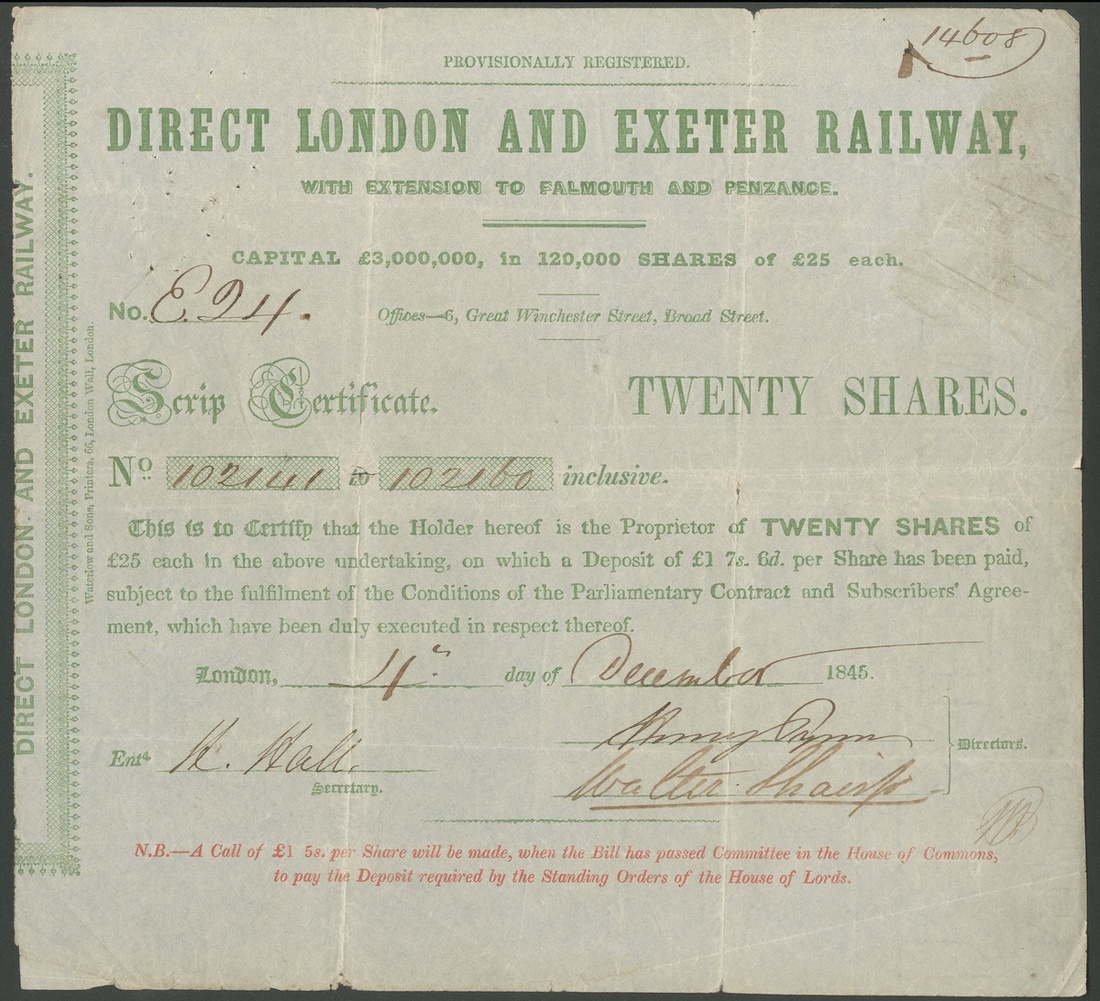 14608
PROVISIONALLY REGISTERED.
DIRECT LONDON AND EXETER RAILWAY,
WITH EXTENSION TO FALMOUTH AND PENZANCE.
CAPITAL £3,000,000, in 120,000 SHARES of £25 each.
No. E.24.
Offices—6, Great Winchester Street, Broad Street.
Scrip Certificate. TWENTY SHARES.
No. 102141 to 102160 inclusive.
This is to Certify that the Holder hereof is the Proprietor of TWENTY SHARES of
£25 each in the above undertaking, on which a Deposit of £1 7s. 6d. per Share has been paid,
subject to the fulfilment of the Conditions of the Parliamentary Contract and Subscribers' Agree-
ment, which have been duly executed in respect thereof.
London, 4th day of December 1845.
Henry
Directors.
Entd. H. Hall.
Walter Shairp
Secretary.
N.B.—A Call of £1 5s. per Share will be made, when the Bill has passed Committee in the House of Commons,
to pay the Deposit required by the Standing Orders of the House of Lords.
DIRECT LONDON AND EXETER RAILWAY.
Waterlow and Sons, Printers, 66, London Wall, London.